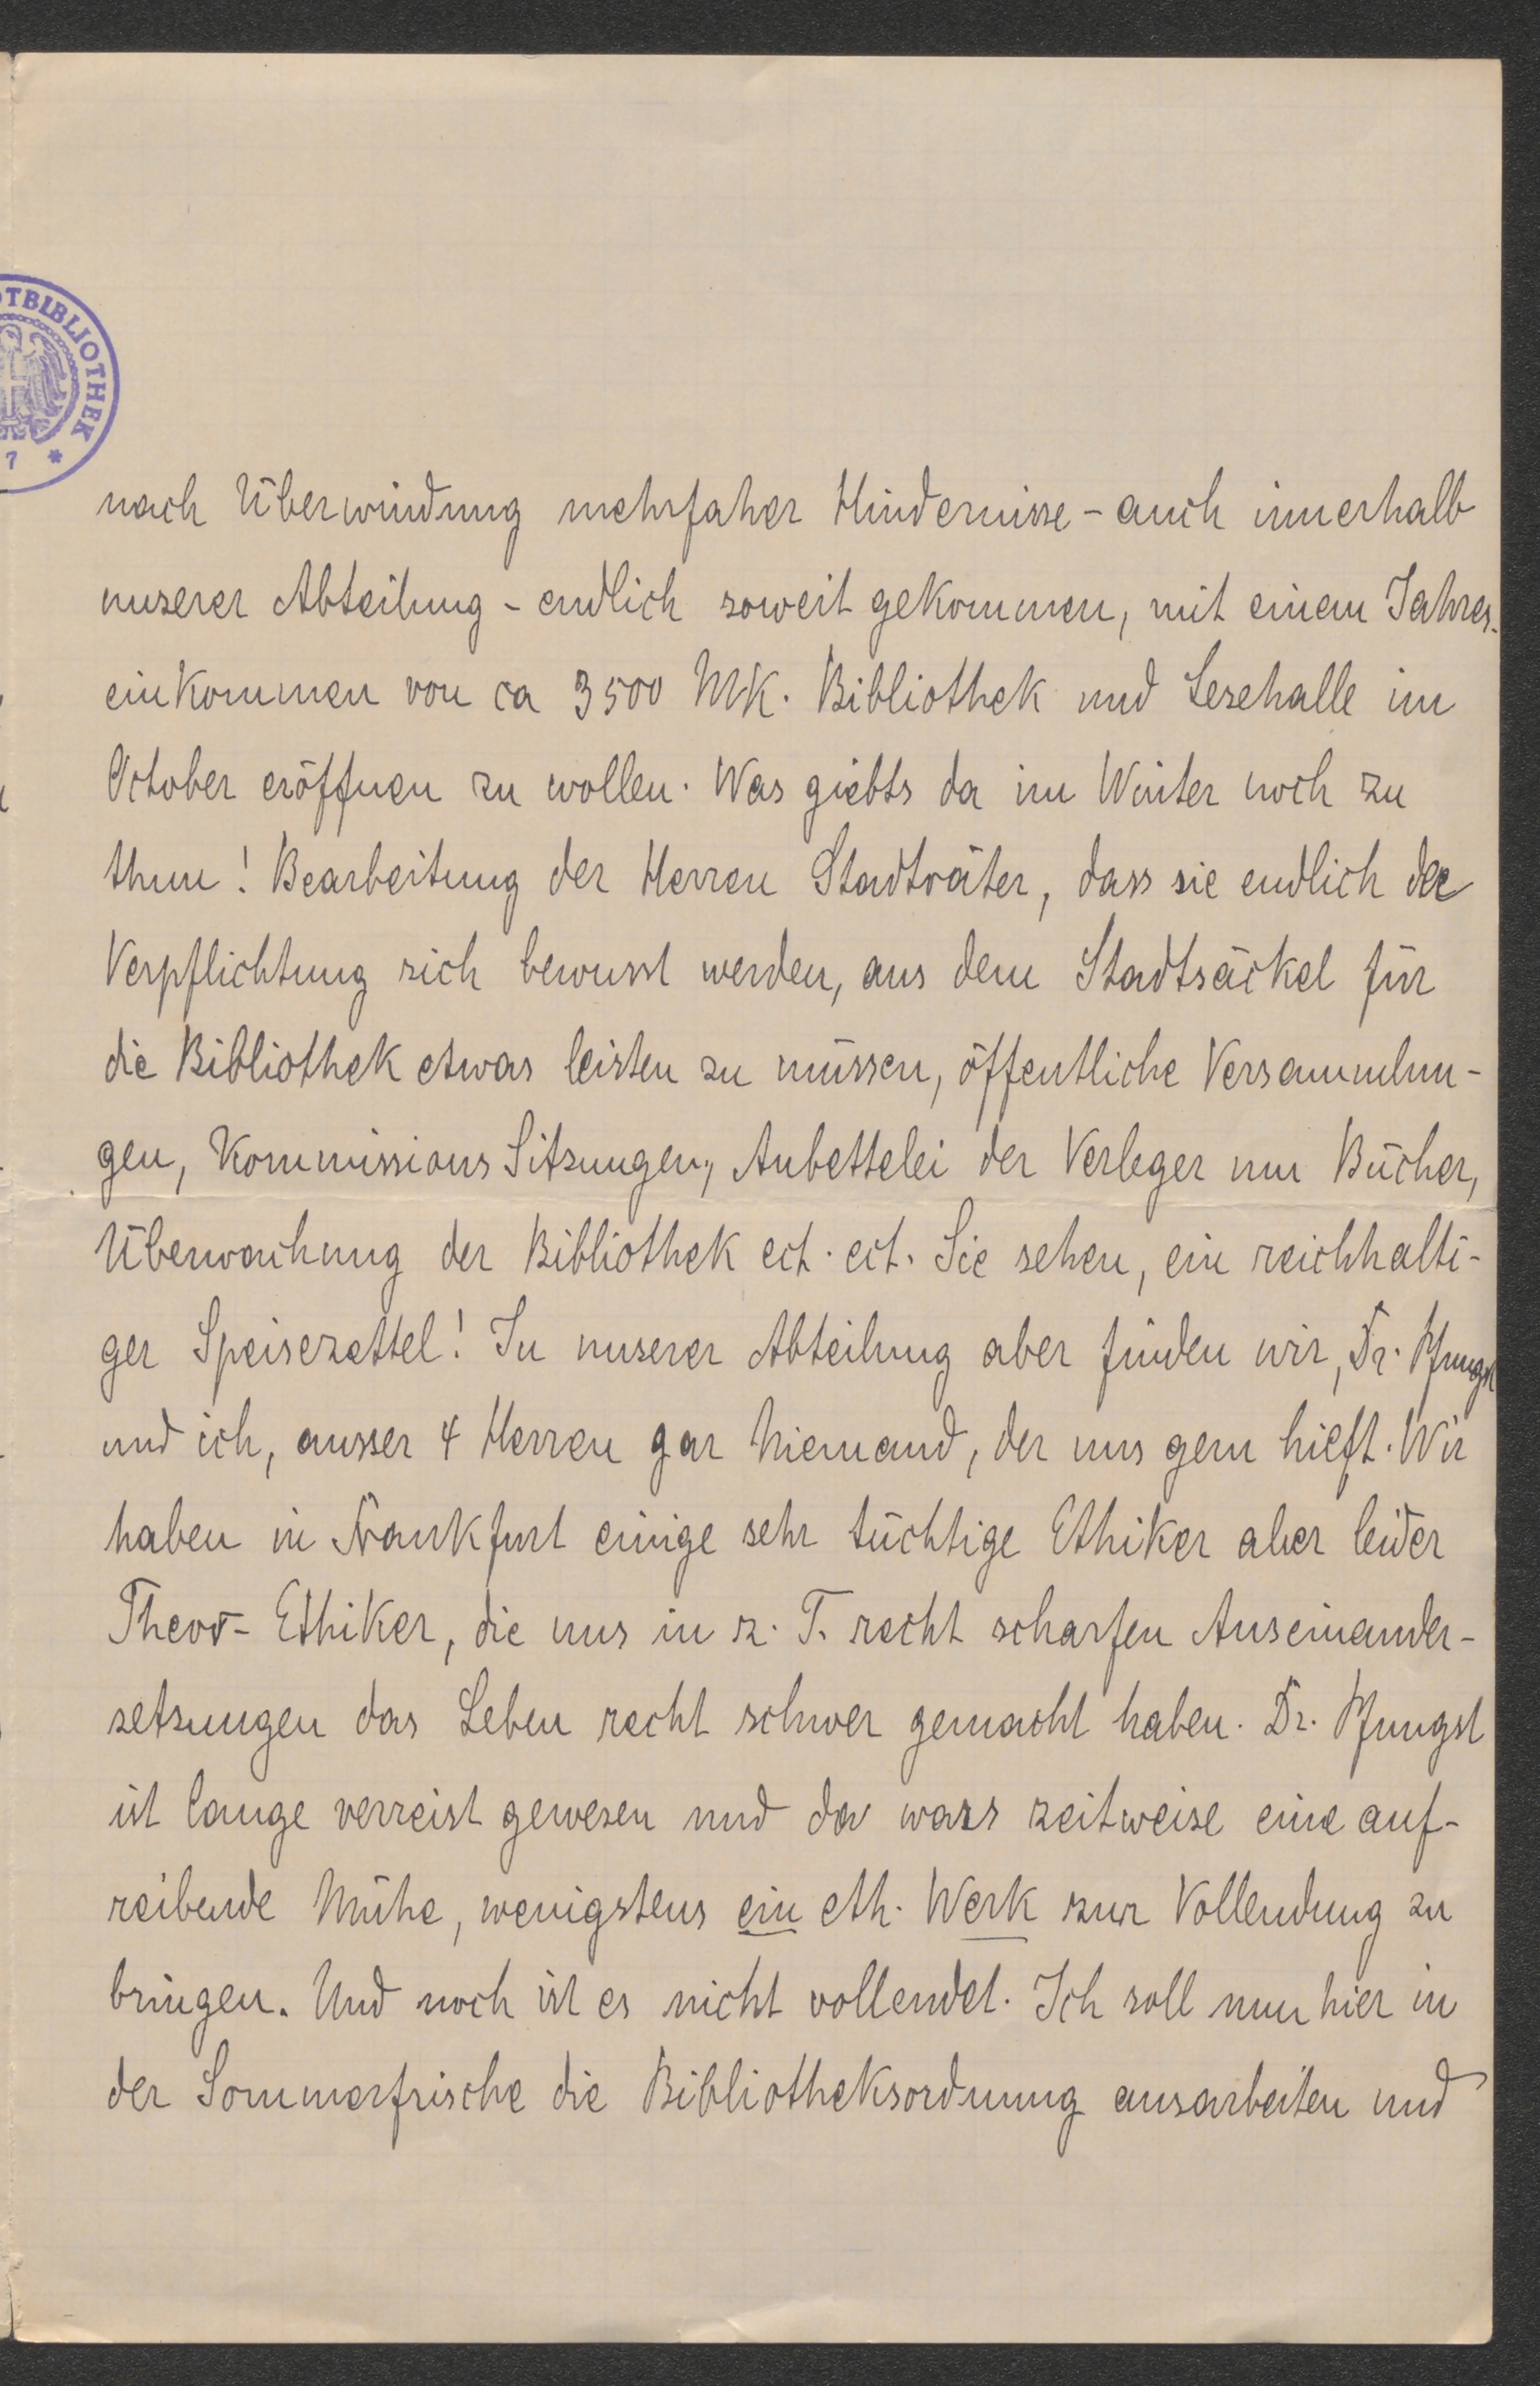 OTBIBLIOTHEK
7 *
nach Überwindung mehrfaher Hindernisse - auch innerhalb
unserer Abteilung - endlich soweit gekommen, mit einem Jahres-
einkommen von ca 3500 Mk. Bibliothek und Lesehalle im
October eröffnen zu wollen. Was giebts da im Winter noch zu
thun! Bearbeitung der Herren Stadträter, dass sie endlich der
Verpflichtung sich bewusst werden, aus dem Stadtsäckel für
die Bibliothek etwas leisten zu müssen, öffentliche Versammlun-
gen, Kommissions Sitzungen, Anbettelei der Verleger um Bücher,
Überwachung der Bibliothek ect. ect. Sie sehen, ein reichhalti-
ger Speisezettel! In unserer Abteilung aber finden wir, Dr. Pfungst
und ich, ausser 4 Herren gar Niemand, der uns gern hieft. Wir
haben in Frankfurt einige sehr tüchtige Ethiker aber leider
Theor- Ethiker, die uns in z. T. recht scharfen Auseinander-
setzungen das Leben recht schwer gemacht haben. Dr. Pfungst
ist lange verreist gewesen und da wars zeitweise eine auf-
reibende Mühe, wenigstens ein eth. Werk zur Vollendung zu
bringen. Und noch ist es nicht vollendet. Ich soll nun hier in
der Sommerfrische die Bibliotheksordnung ausarbeiten und